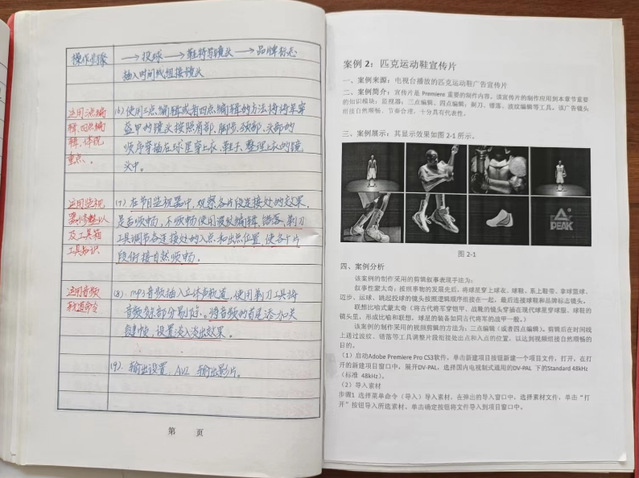 操作步骤
→投球→鞋特写镜头→品牌标志
插入时间线组接镜头
运用三点编
辑、四点编
辑、体现
重点、
(6)使用三点编辑或者四点编辑的方法将将军穿
盔甲的镜头按照
顺序穿插在球星穿上衣、鞋子、整理上衣的镜
头中。
运用监视
及工具箱
工具知识
(7)在节目监视器中,观察各片段连接处的效果,
是否顺畅,不顺畅使用波纹编辑、错落、剃刀
工具调节各连接处的入点和出点位置,使各个片
段衔接自然顺畅。
运用音频
(8) mp3音频插入立体声轨道,使用剃刀工具将
音频多余部分剪切,将音频的首尾添加关
键帧,设置淡入淡出效果。
(9)输出设置,AVI,输出影片。
第 页
案例 2:匹克运动鞋宣传片
一、案例来源:电视台播放的匹克运动鞋广告宣传片
二、案例简介:宣传片是 Premiere 重要的制作内容,该宣传片的制作应用到本章节重要
的知识模块:监视器、三点编辑、四点编辑、剃刀、错落、波纹编辑等工具。该广告镜头
组接自然顺畅,节奏合理,十分具有代表性。
三、案例展示:其显示效果如图 2-1 所示。
PEAK
图 2-1
四、案例分析
该案例的制作采用的剪辑叙事表现手法为:
叙事性蒙太奇:按照事物的发展先后,将球星穿上球衣、球鞋、系上鞋带、拿球篮球、
迈步、运球、跳起投球的镜头按照逻辑顺序连接在一起,最后连接球鞋和品牌标志镜头。
联想比喻式蒙太奇(将古代将军穿铠甲、战靴的镜头穿插在现代球星穿球服、球鞋的
镜头里,形成比喻和联想,球星的装备如同古代将军的战甲一般。)
该案例的制作采用的视频剪辑的方法为:三点编辑(或者四点编辑)。剪辑后在时间线
上通过波纹、错落等工具调整片段衔接处出点和入点的位置,以达到视频组接自然顺畅的
目的。
(1)启动Adobe Premiere Pro CS3软件,单击新建项目按钮新建一个项目文件,打开,在打
开的新建项目窗口中,展开DV-PAL,选择国内电视制式通用的DV-PAL 下的Standard 48kHz
(标准 48kHz)。
(2)导入素材
步骤1 选择菜单命令(导入)导入素材,在弹出的导入窗口中,选择素材文件,单击"打
开"按钮导入所选素材,单击确定按钮将文件导入到项目窗口中。